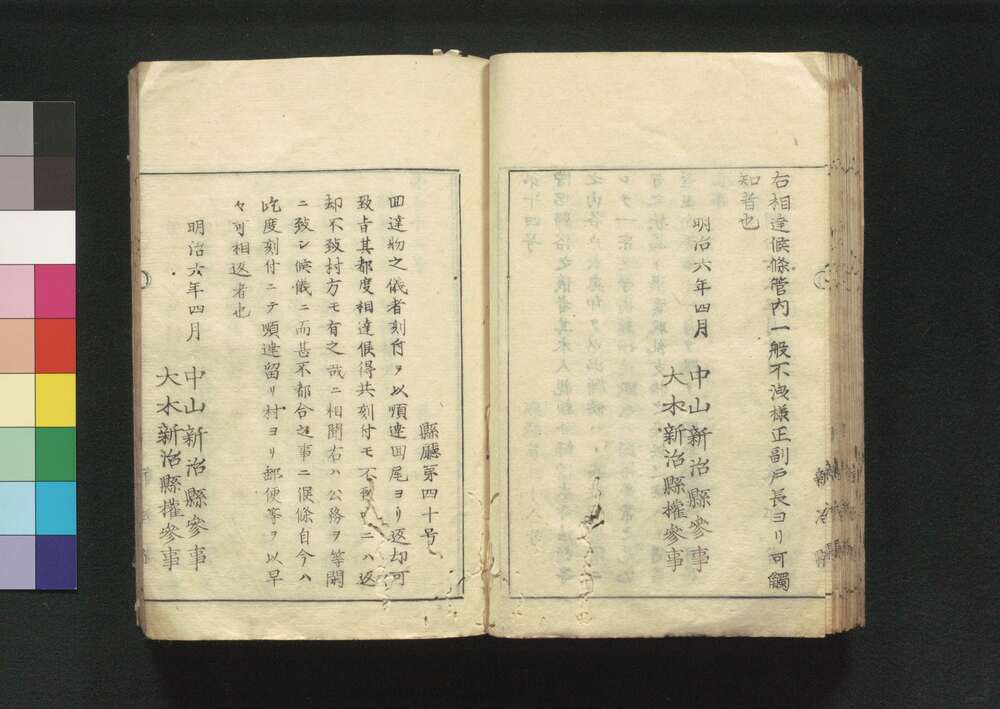 右相達候條管内一般不洩様正副戸長ヨリ可觸
知者也
明治六年四月
中山新治縣參事
大木新治縣權參事
縣廳第四十号
回達物之儀者刻付ヲ以順達回尾ヨリ返却可
致旨其都度相達候得共刻付モ不
ニハ返
却不致村方モ有之哉ニ相聞右ハ公務ヲ等閑
ニ致シ候儀ニ而甚不都合之事ニ候條自今ハ
屹度刻付ニテ順達留リ村ヨリ郵便等ヲ以早
々可相返者也
明治六年四月
中山新治縣參事
大木新治縣權參事